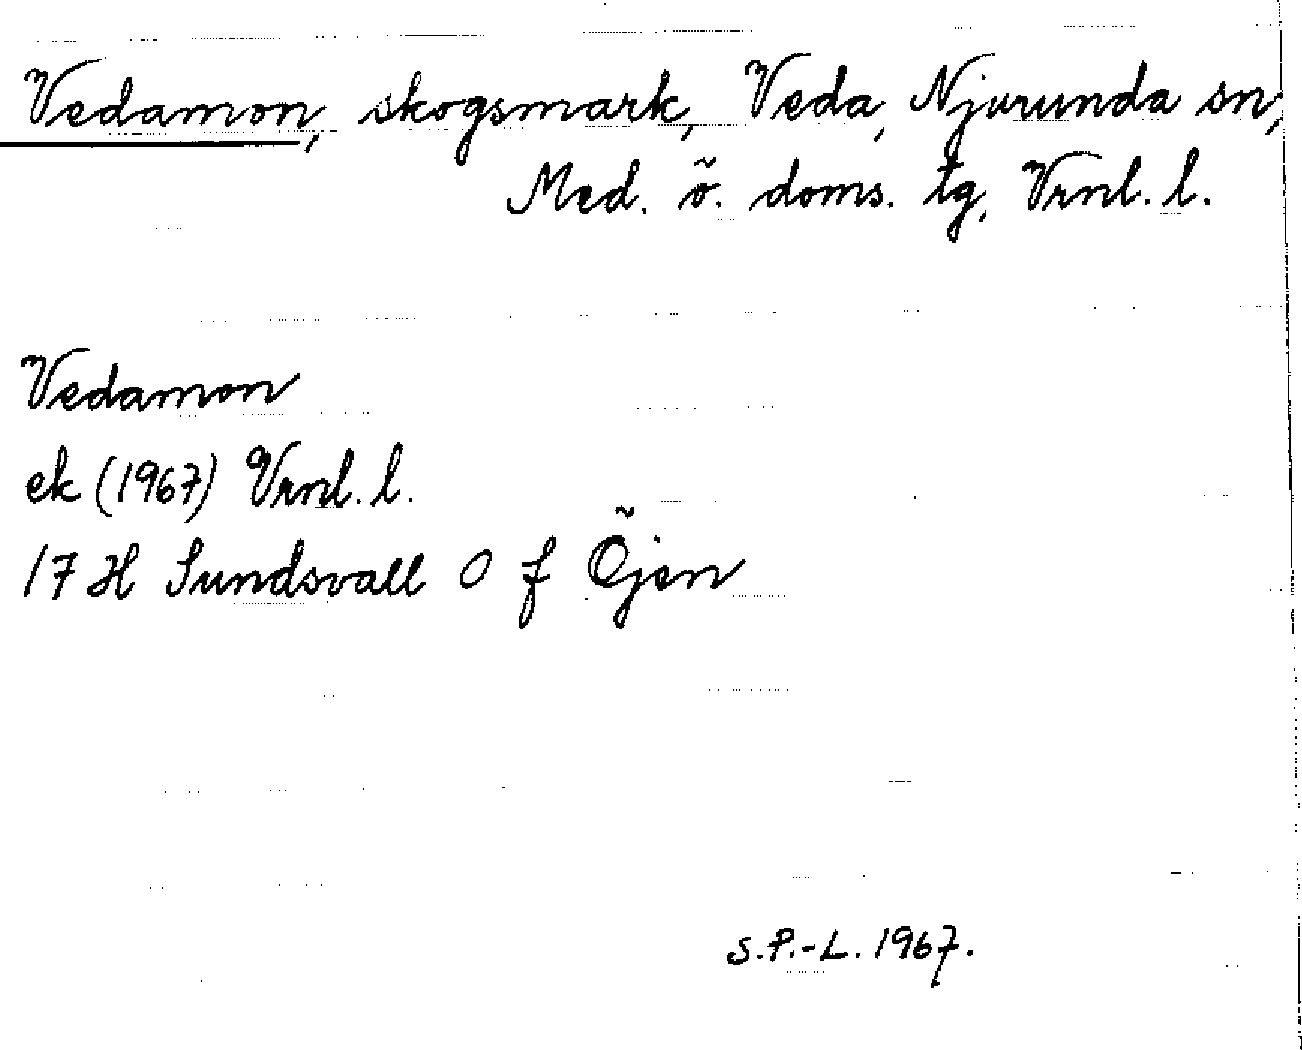 Vedamon, skogsmark, Veda, Njurunda sn,
Med. ö. doms. tg, Vrnl. l.
Vedamon
ek (1967) Vrnl. l.
17 H Sundsvall O f Öjen
S.P.-L. 1967.